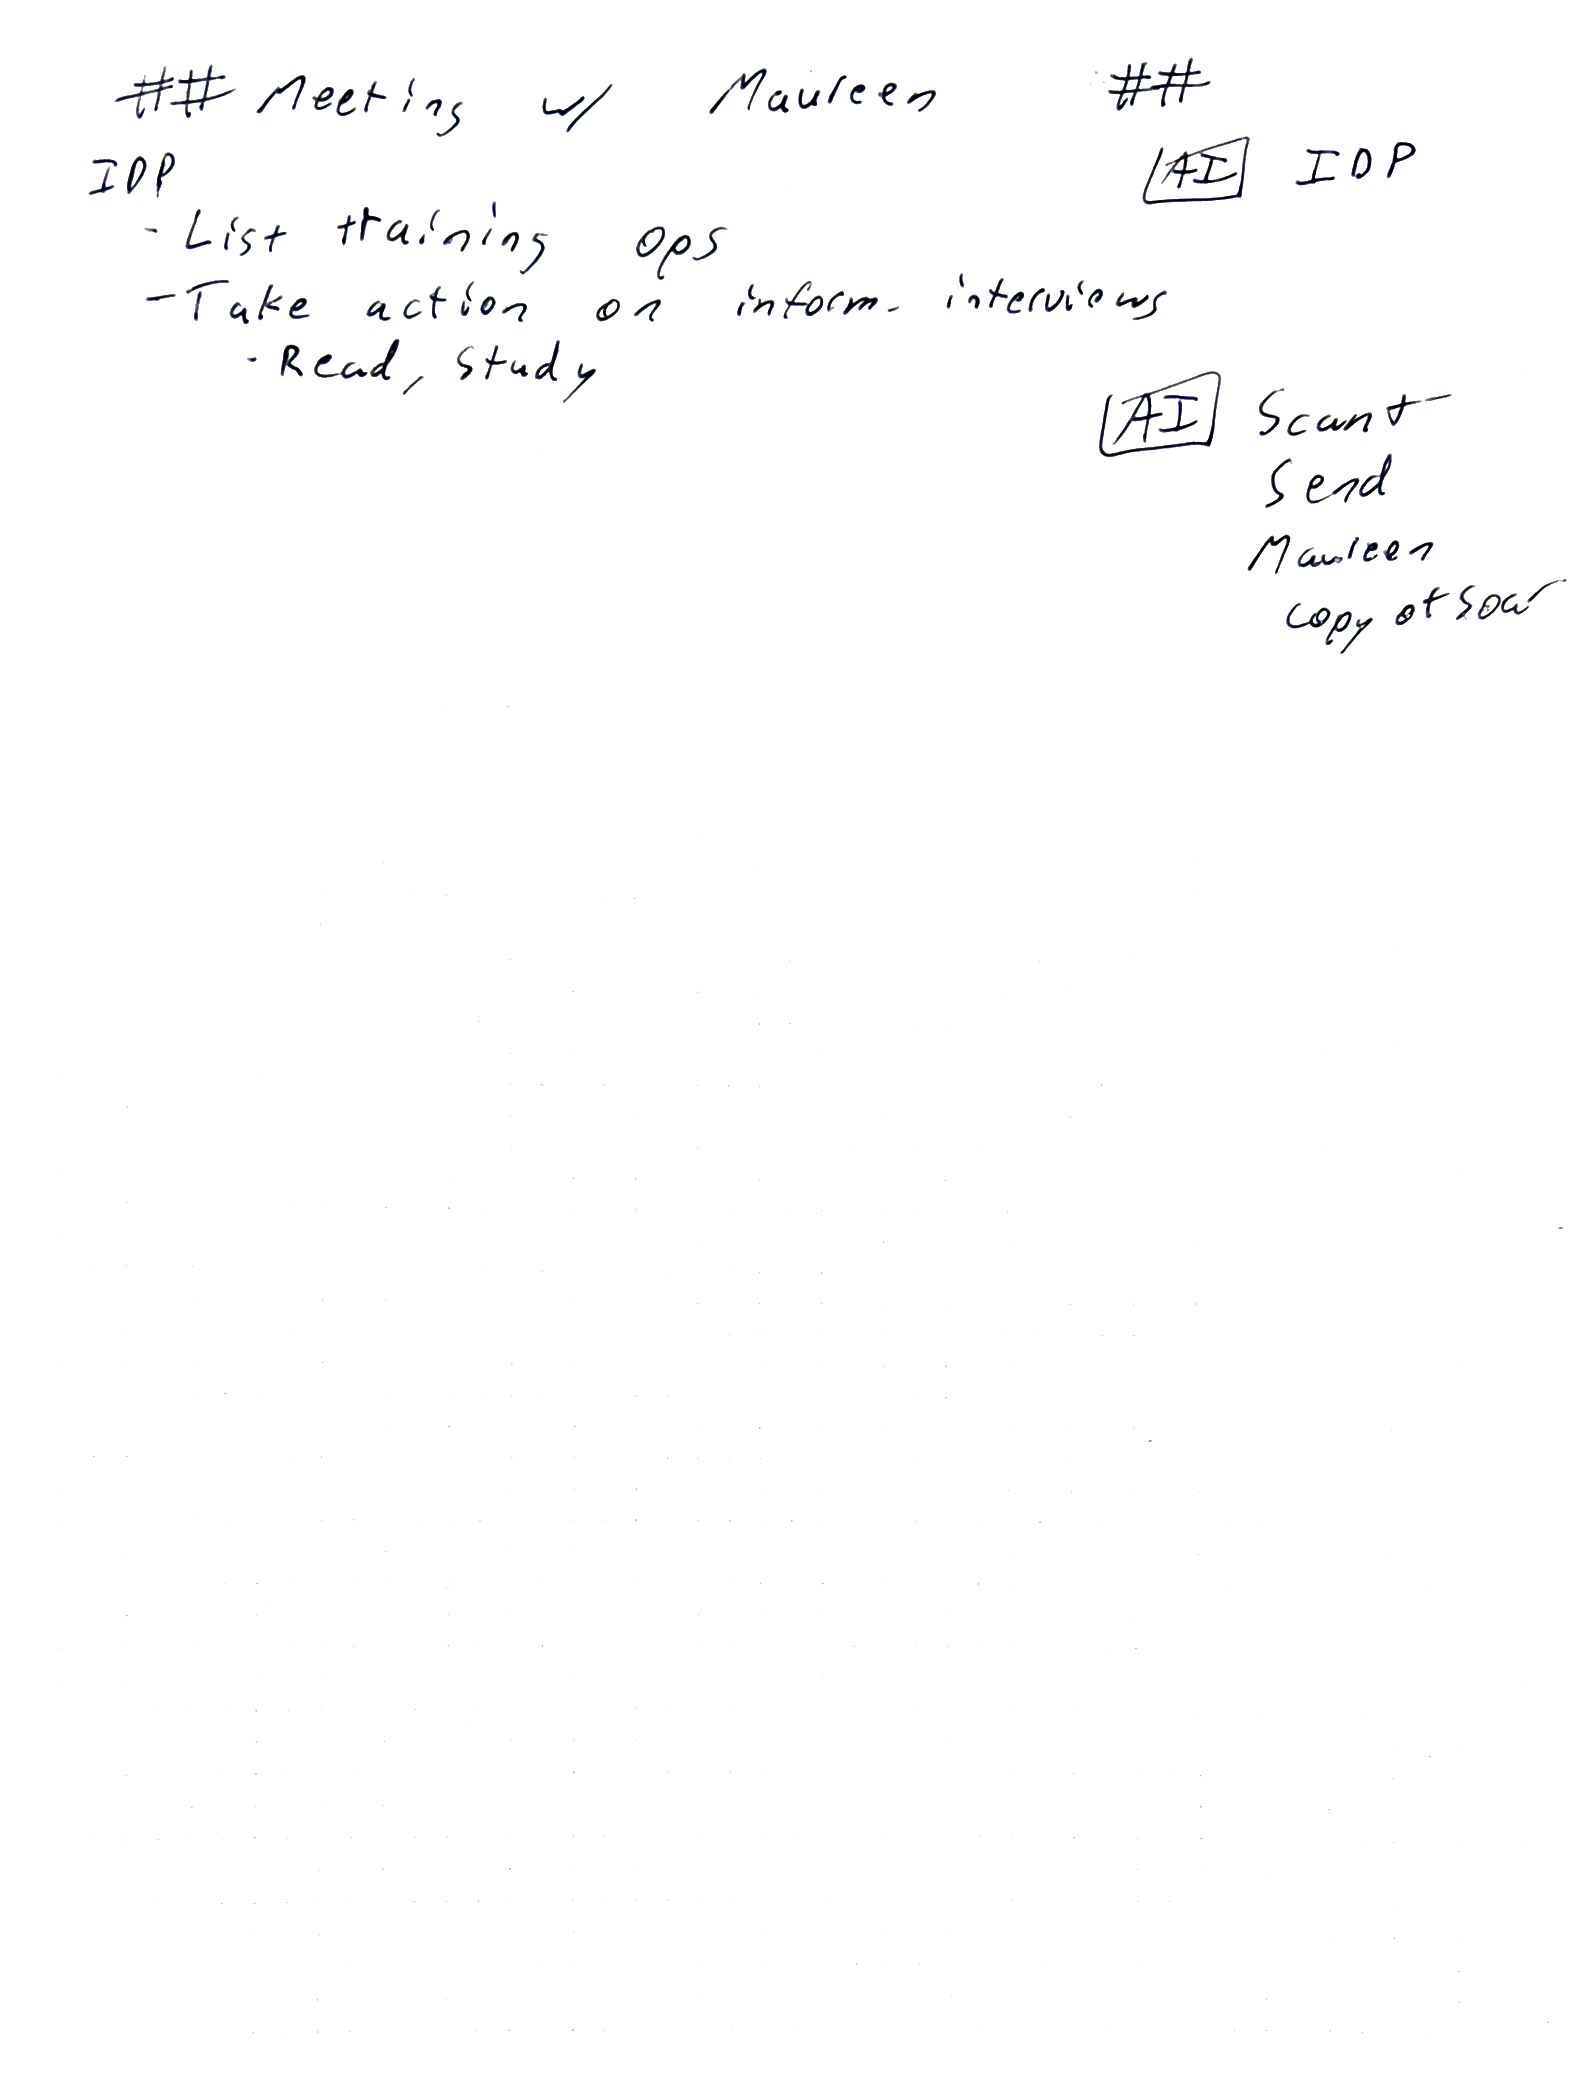 ## Meeting w/ Maureen ##
IDP
AI IDP
- List training ops
- Take action on inform. interviews
- Read, study
AI Scan +
Send
Maureen
copy of soar